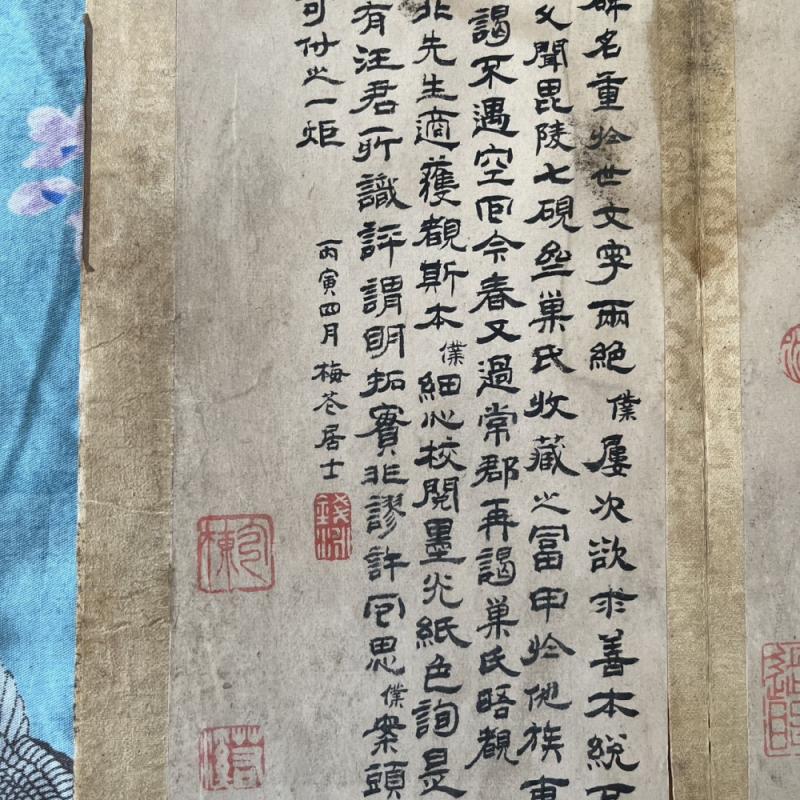 碑名重於世文字兩絕僕屢次欲求善本緃
又聞毘陵七硯盦巢氏收藏之富甲於他族
謁不遇空囘今春又過常郡再謁巢氏晤觀
先生適獲觀斯本僕細心校閱墨光紙色詢是
有汪君所識評謂明拓實非謬許囘思僕案頭
可付之一炬
丙寅四月梅茖居士